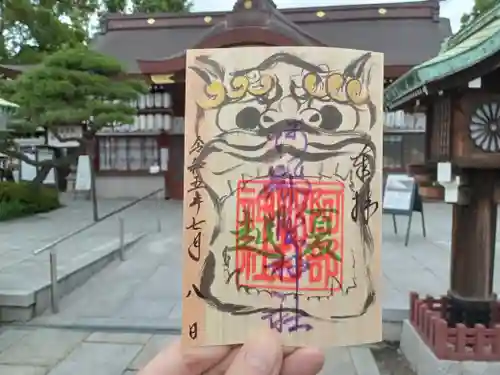 奉拝
夏越
阿部野神社
令和五年七月八日